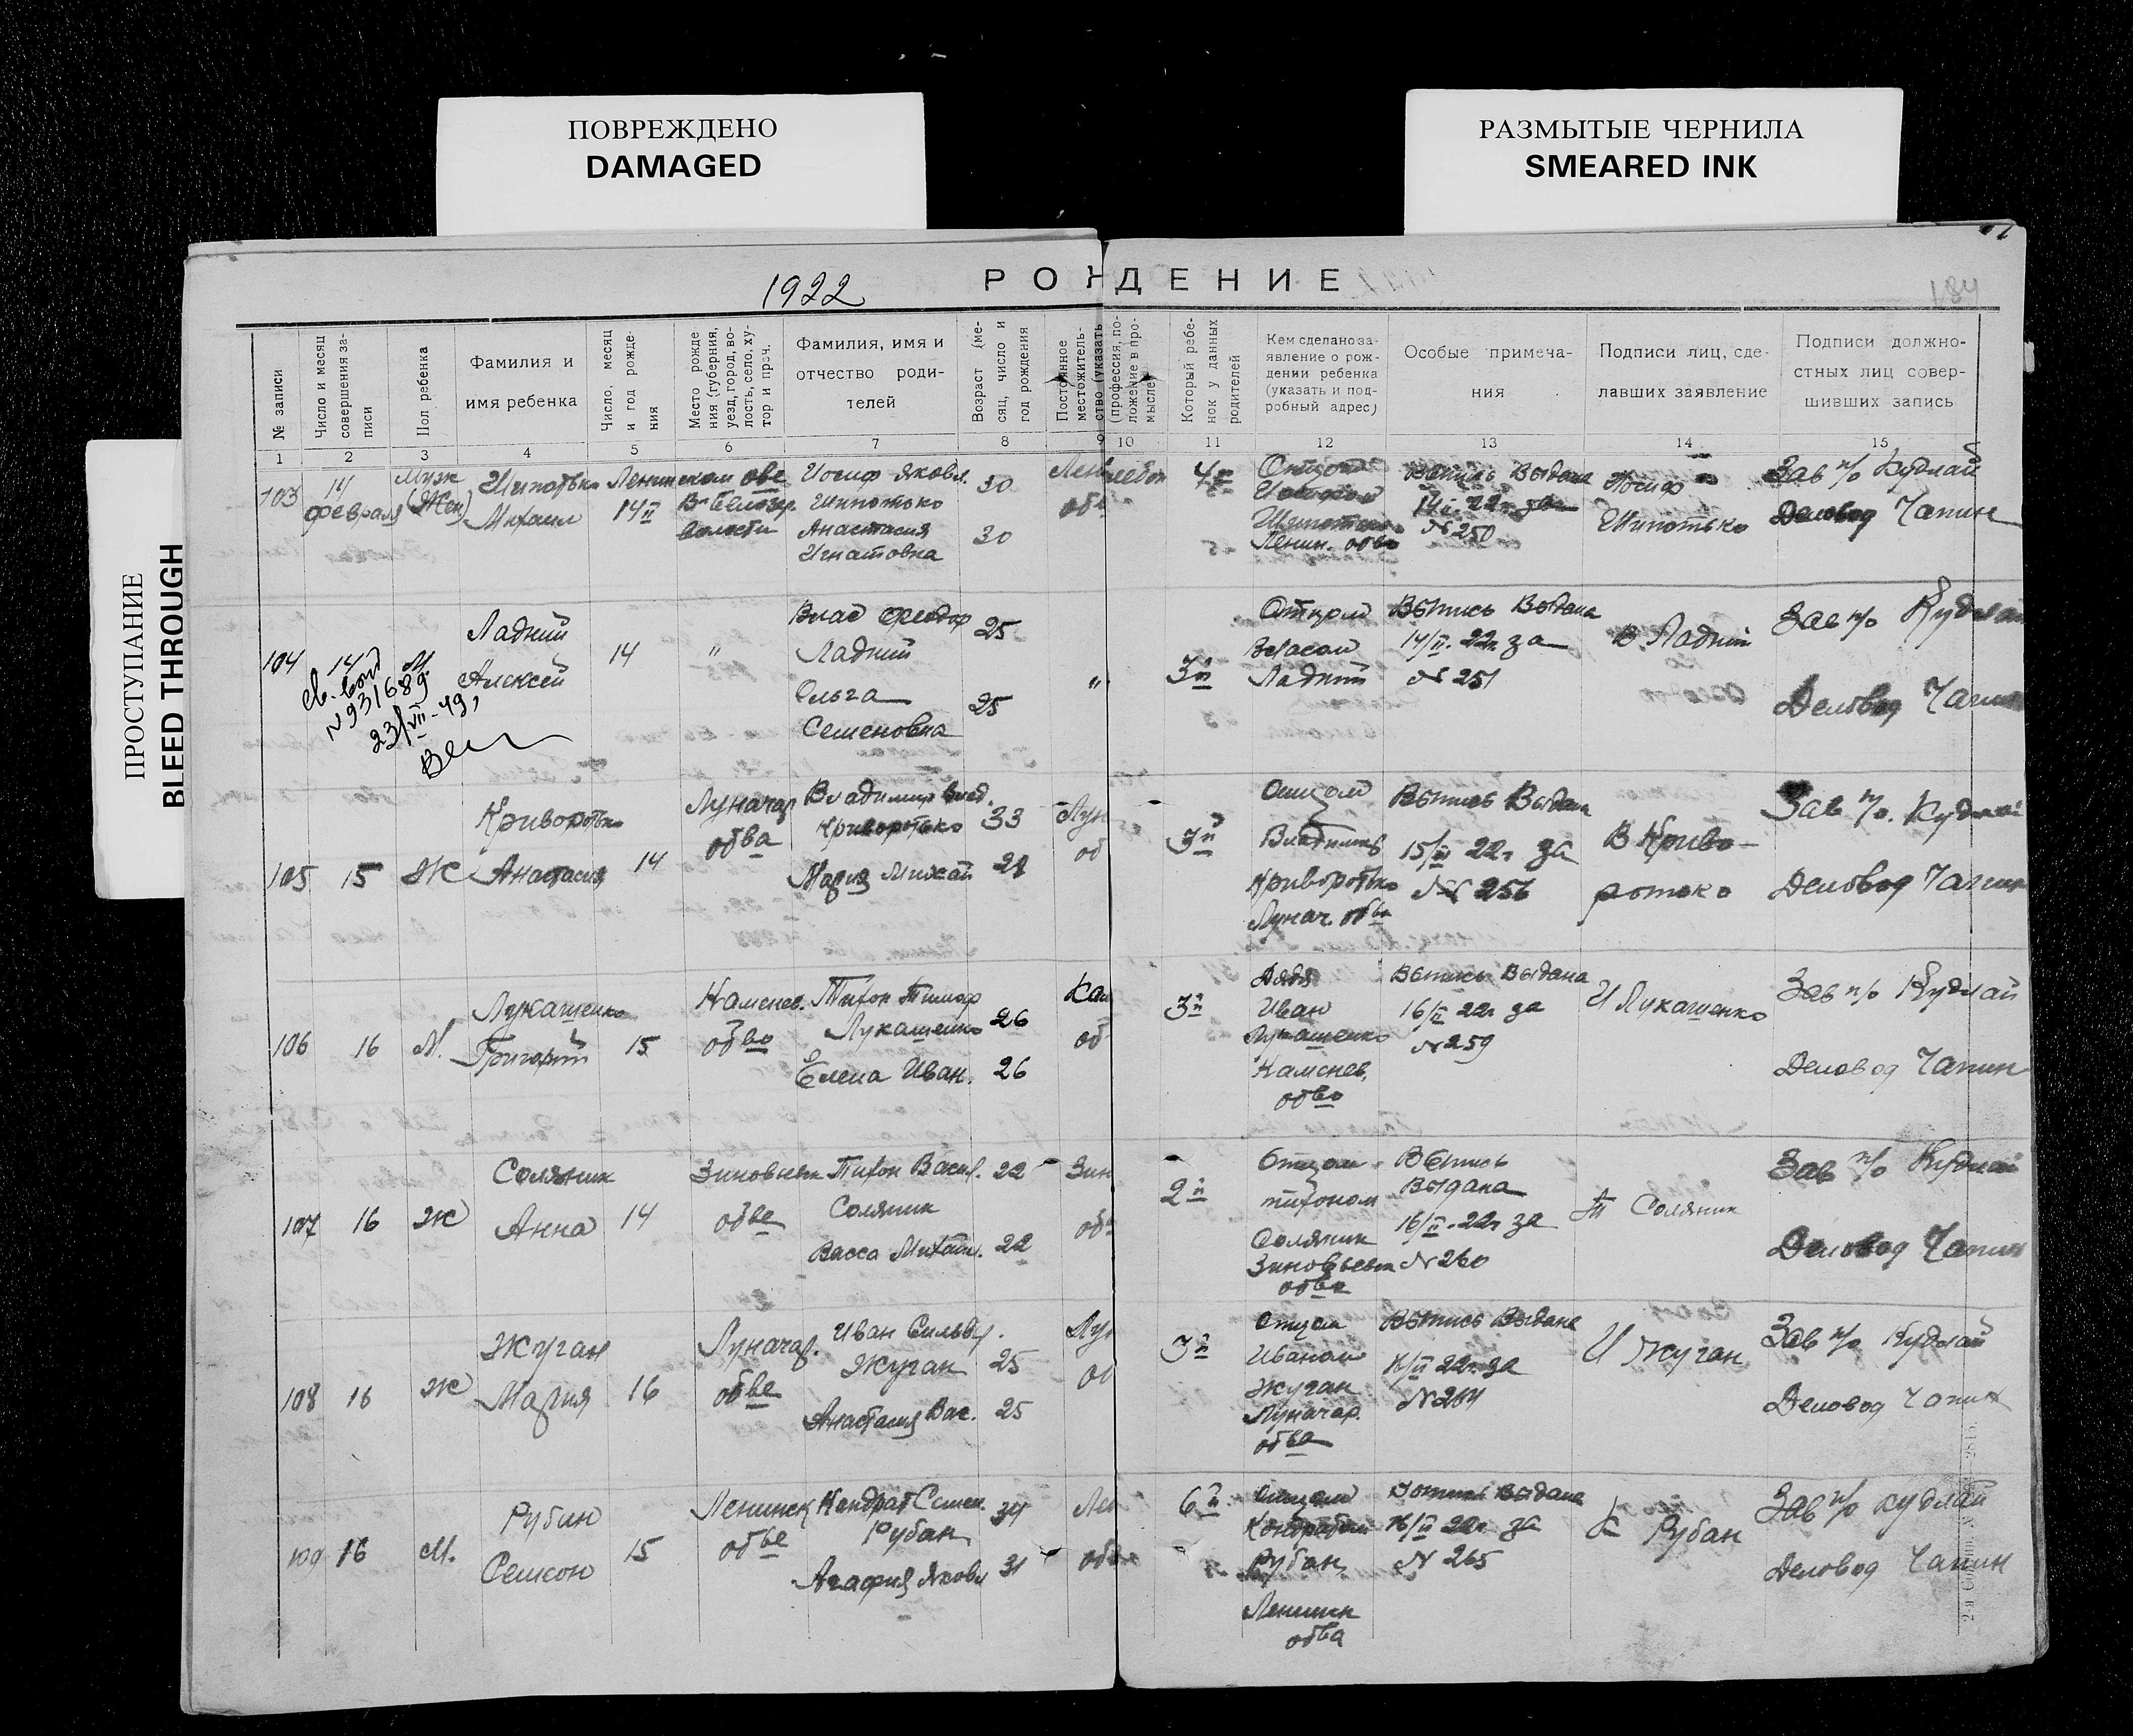 ПОВРЕЖДЕНО
DAMAGED
РАЗМЫТЫЕ ЧЕРНИЛА
SMEARED INK
ПРОСТУПАНИЕ
BLEED THROUGH
1922
РОЖДЕНИЕ
184
№ записи
Число и месяц
совершения за-
писи
Пол ребенка
Фамилия и
имя ребенка
Число, месяц
и год рожде-
ния
Место рожде
ния (губерния,
уезд, город, во-
лость, село, ху-
тор и проч.
Фамилия, имя и
отчество роди-
телей
Возраст (ме-
сяц, число и
год рождения
Постоянное
местожитель-
ство (указать
(профессия, по-
ложение в про-
мысле
Который ребе-
нок у данных
родителей
Кем сделано за-
явление о рож-
дении ребенка
(указать и под-
робный адрес)
Особые примеча-
ния
Подписи лиц, сде-
лавших заявление
Подписи должно-
стных лиц совер-
шивших запись
1 2 3 4 5 6 7 8 9 10 11 12 13 14 15
103
14
февраля
Муж
(Жен)
Шипотько
Михаил
14 II
Ленинском обве
волости
Иосиф Яковл.
Шипотько
Анастасия
Игнатовна
30
30
4й
Отцом
Иосифом
Ленин. обва
Выпись Выдана
14/II. 22г. за
№ 250
Иосиф
Шипотько
Зав п/о Кудлай
Деловод Чапин
104
14
М
св. выд
№ 931689
23/VII-49,
Ладний
Алексей
14
"
Влас Феодор
Ладний
Ольга
Семеновна
25
25
"
3й
Отцом
Власом
Ладний
Выпись Выдана
14/II. 22г. за
№ 251
В Ладний
Зав п/о Кудлай
Деловод Чапин
105
15
Ж
Криворотько
Анастасия
14
Луначар
обва
Владимир
Криворотько
Мария Михай
33
Лун
об
3й
Отцом
Криворотько
Лунач. обва
Выпись Выдан
15/II 22г за
№ 256
В Криво-
ротько
Зав п/о. Кудлай
Деловод Чапин
106
16
М.
Лукашенко
Григорий
15
Каменев.
обво
Тихон Тимоф
Лукашенко
Елена Иван.
26
26
Кам
об
3й
Дядя
Иван
Лукашенко
Каменев.
обво
Выпись Выдана
16/II 22г за
№ 259
И Лукашенко
Зав п/о Кудлай
Деловод Чапин
107
16
Ж
Соляник
Анна
14
обве
Тихон Васил.
Соляник
Васса Михайл.
22
22
Зин
об
2й
Отцом
тихоном
Соляник
обва
Выпись
Выдана
16/II. 22г за
№ 260
Т Соляник
Зав п/о Кудлай
Деловод Чапин
108
16
Ж
Жуган
Мария
16
Луначар.
обве
Иван
Жуган
Анастасия Вас.
25
25
Лун
об
3й
Отцом
Иваном
Жуган
Луначар.
обва
Выпись Выдана
16/II 22г. за
№ 264
И Жуган
Зав п/о Кудлай
Деловод Чапин
109
16
М.
Рубин
Семсон
15
Ленинск
обве
Кондрат Семен.
Рубан
Агафия Яковл
34
31
Лен
об
6й
Отцом
Рубан
Ленинск
обва
Выпись Выдана
16/II 22г за
№ 265
К Рубан
Зав п/о Кудлай
Деловод Чапин